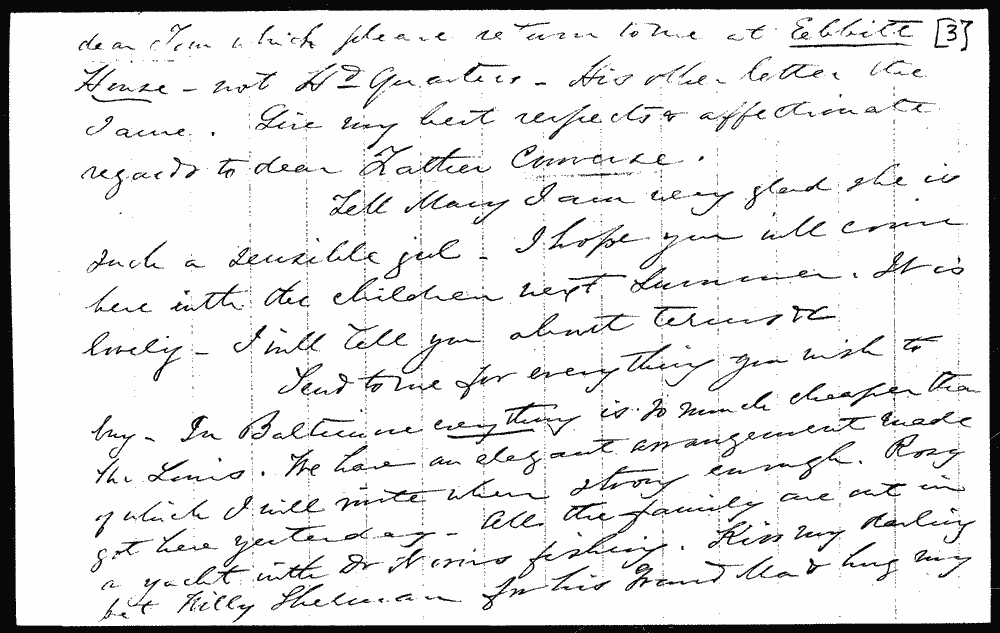 dear Tom which please return to me at Ebbitt [3]
House - not Hd Quarters - His other letter the
same. Give my best respects & affectionate
regards to dear Father Converse.
Tell Mary I am very glad she is
such a sensible girl - I hope you will come
here with the children next Summer. It is
lovely - I will tell you about terms &c
Send to me for everything you wish to
buy - In Baltimore everything is so much cheaper than
St. Louis. We have an elegant arrangement made
of which I will write when strong enough. Rosy
got here yesterday - All the family are out in
a yacht with Dr Norris fishing. Kiss my darling
pet Willy Sherman for his Grand Ma & hug my